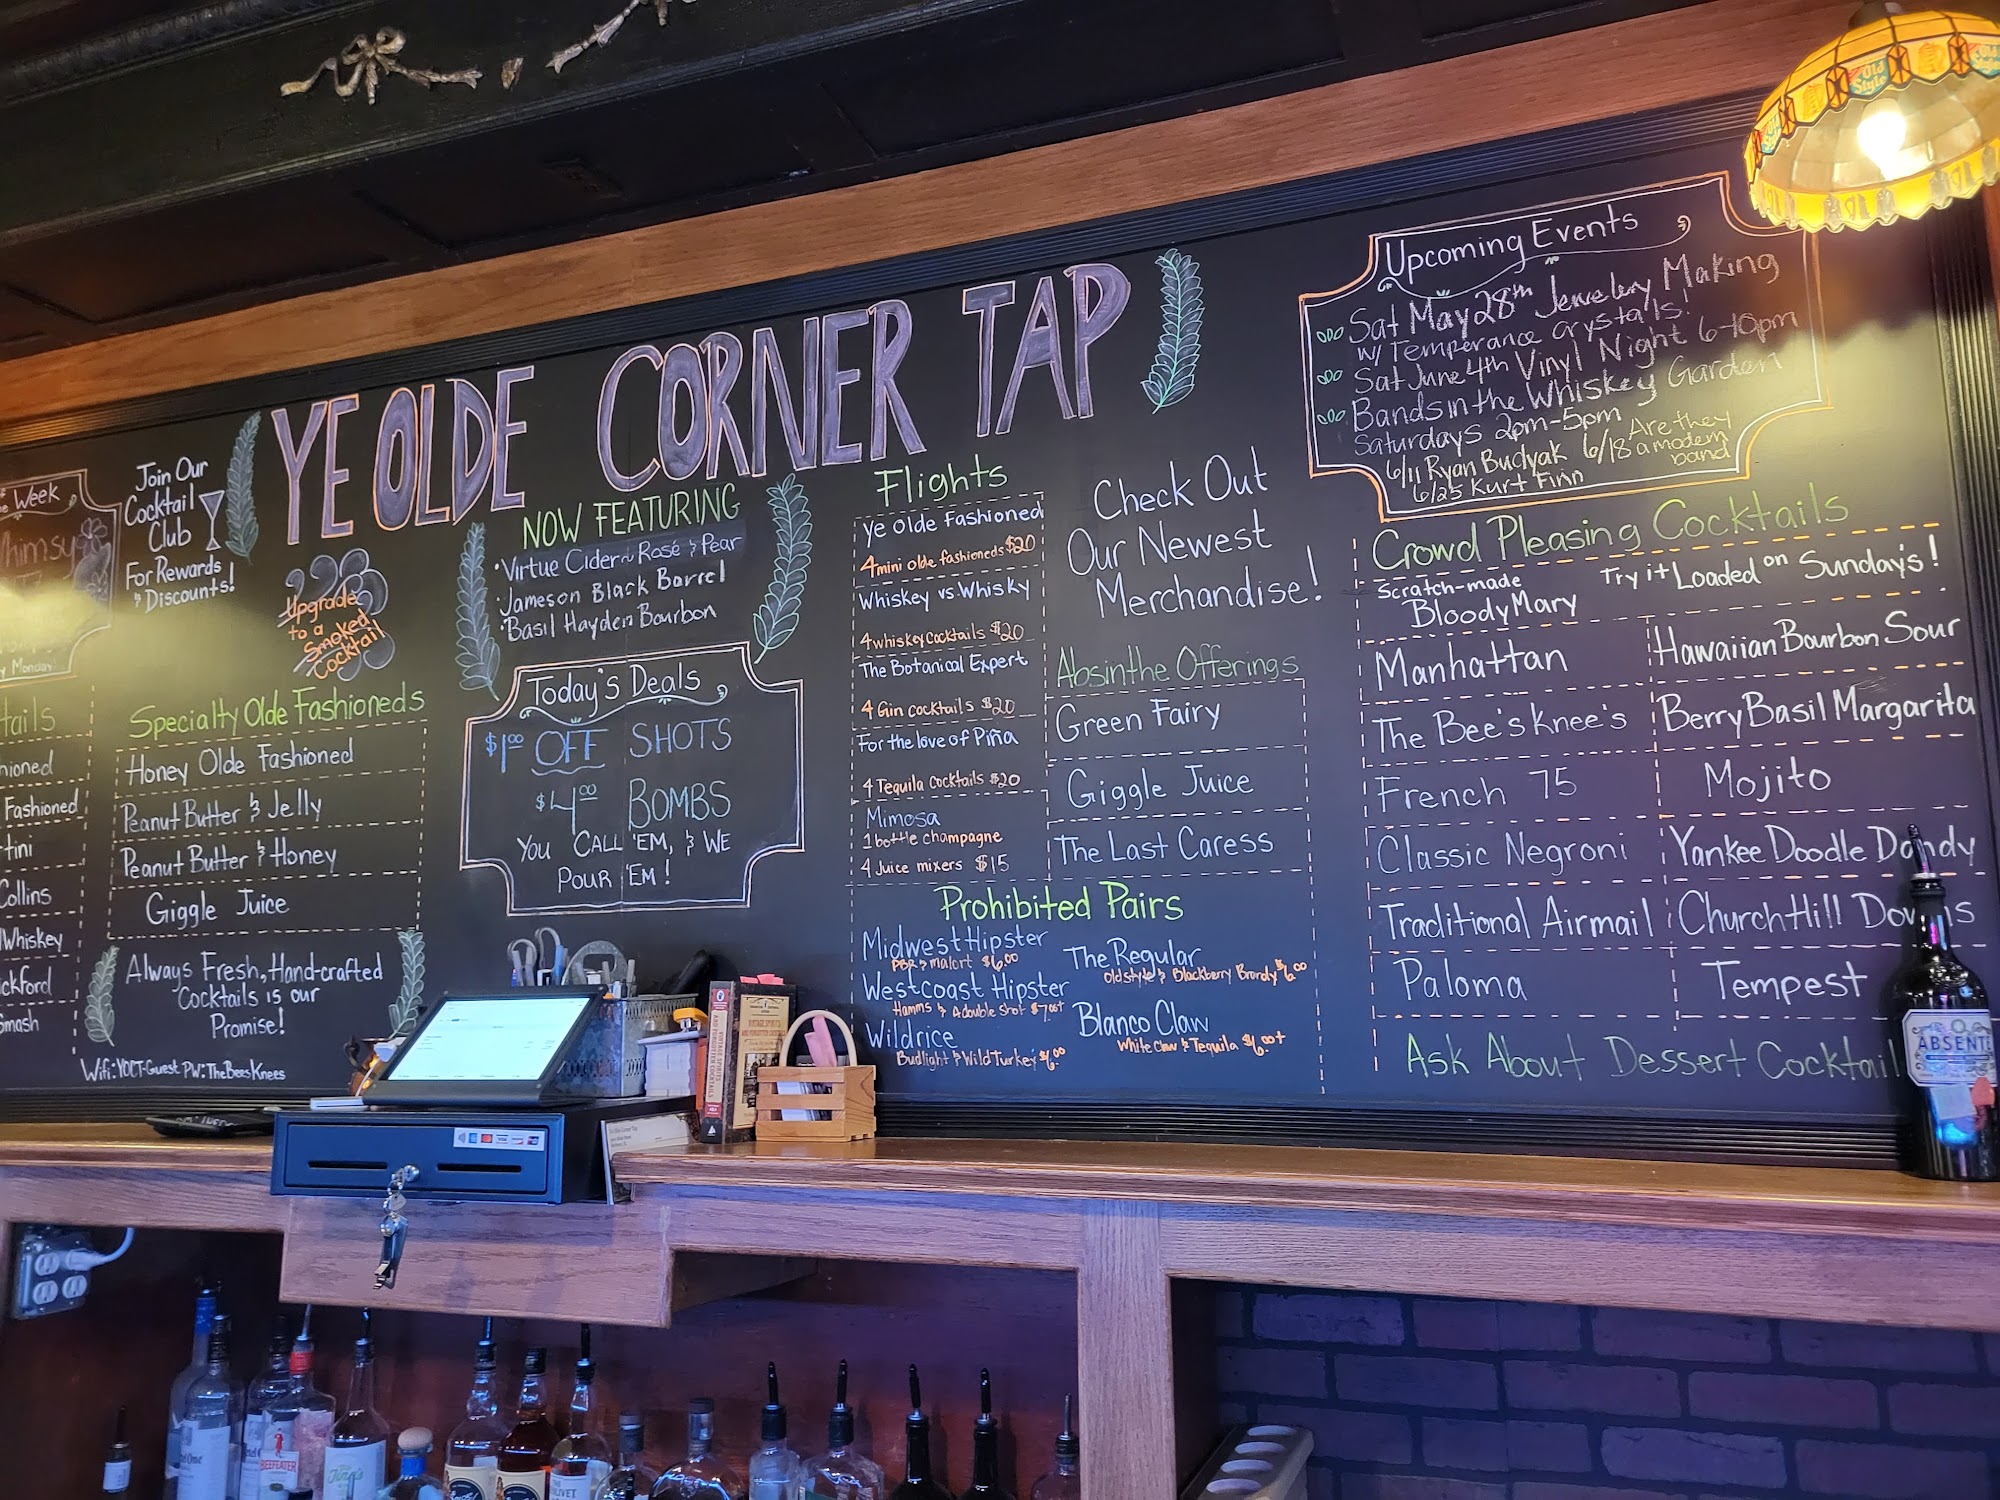 Week
himsy
y Monday!
Join Our
Cocktail
Club
For Rewards
& Discounts!
YE OLDE CORNER TAP
Upgrade
to a
Smoked
Cocktail
tails
hioned
Fashioned
tini
Collins
Whiskey
ckford
Smash
Specialty Olde Fashioneds
Honey Olde Fashioned
Peanut Butter & Jelly
Peanut Butter & Honey
Giggle Juice
Always Fresh, Hand-crafted
Cocktails is our
Promise!
Wifi: YOCT-Guest PW: TheBeesKnees
NOW FEATURING
• Virtue Cider ~ Rosé & Pear
• Jameson Black Barrel
• Basil Hayden Bourbon
Today's Deals
$1.00 OFF SHOTS
$4.00 BOMBS
YOU CALL 'EM, & WE
POUR 'EM!
Flights
Ye Olde Fashioned
4 mini olde fashioneds $20
Whiskey vs Whisky
4 whiskey cocktails $20
The Botanical Expert
4 Gin cocktails $20
For the love of Piña
4 Tequila cocktails $20
Mimosa
1 bottle champagne
4 Juice mixers $15
Check Out
Our Newest
Merchandise!
Absinthe Offerings
Green Fairy
Giggle Juice
The Last Caress
Prohibited Pairs
Midwest Hipster
PBR & Malort $6.00
Westcoast Hipster
Hamms & A double shot $7.00+
Wildrice
Budlight & Wild Turkey $6.00
The Regular
Old style & Blackberry Brandy $6.00
Blanco Claw
White Claw & Tequila $6.00+
Upcoming Events
Sat May 28th Jewelery Making
w/ Temperance Crystalls!
Sat June 4th Vinyl Night 6-10pm
Bands in the Whiskey Garden
Saturdays 2pm-5pm
6/11 Ryan Budyak 6/18 Are they
a modern
band
6/25 Kurt Finn
Crowd Pleasing Cocktails
Scratch-made
Bloody Mary
Try it Loaded on Sunday's!
Manhattan
Hawaiian Bourbon Sour
The Bee's Knee's
Berry Basil Margarita
French 75
Mojito
Classic Negroni
Yankee Doodle Dandy
Traditional Airmail
Church Hill Downs
Paloma
Tempest
Ask About Dessert Cocktail
Old Style
ABSENTE
BEEFEATER